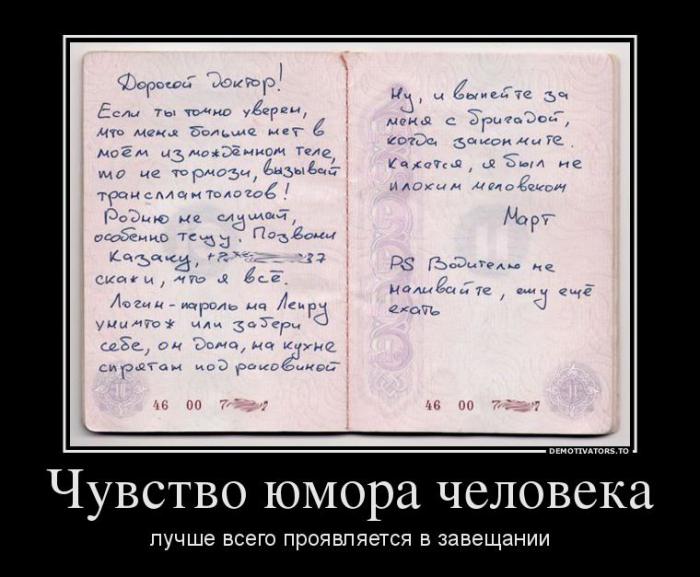 Дорогой Доктор!
Если ты точно уверен,
что меня больше нет в
моём измождённом теле,
то не тормози, вызывай
трансплантологов!
Родню не слушай,
особенно тещу. Позвони
Казаку, +7 37
скажи, что я всё.
Логин-пароль на Лепру
уничтож или забери
себе, он дома, на кухне
спрятан под раковиной
46 00 7 7
Ну, и выпейте за
меня с бригадой,
когда закончите.
Кажется, я был не
плохим человеком
Март
PS Водителю не
наливайте, ему ещё
ехать
46 00 7 7
DEMOTIVATORS.TO
Чувство юмора человека
лучше всего проявляется в завещании